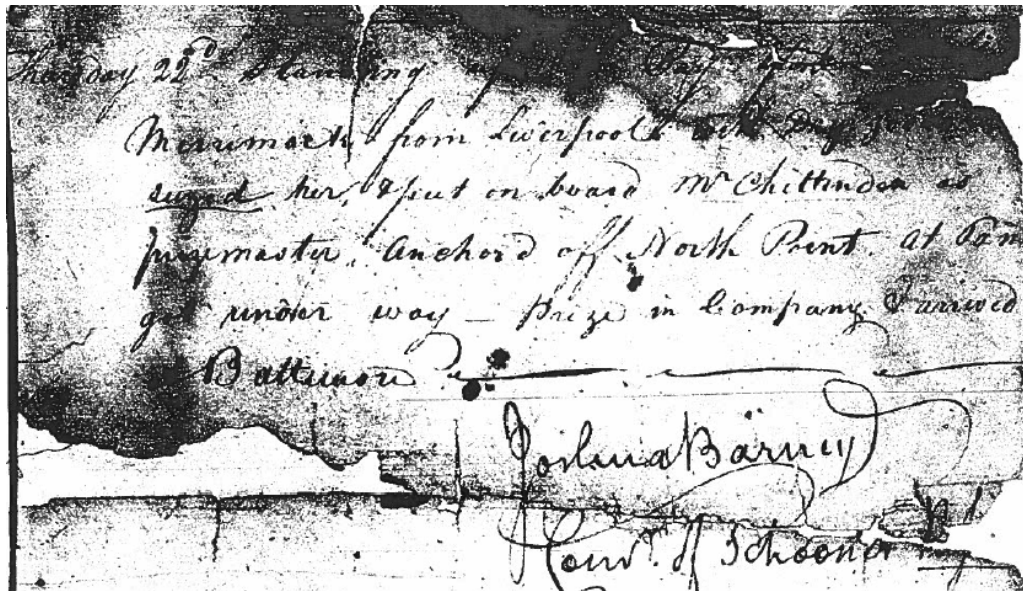 Thursday 22d Standing up Bay
Merrimack from Liverpool with dry
siezed her, & put on board Mr Chittenden as
prizemaster. Anchord off North Point. at
got under way — Prize in Company & arrived
Baltimore
Joshua Barney
Comr. of Schooner